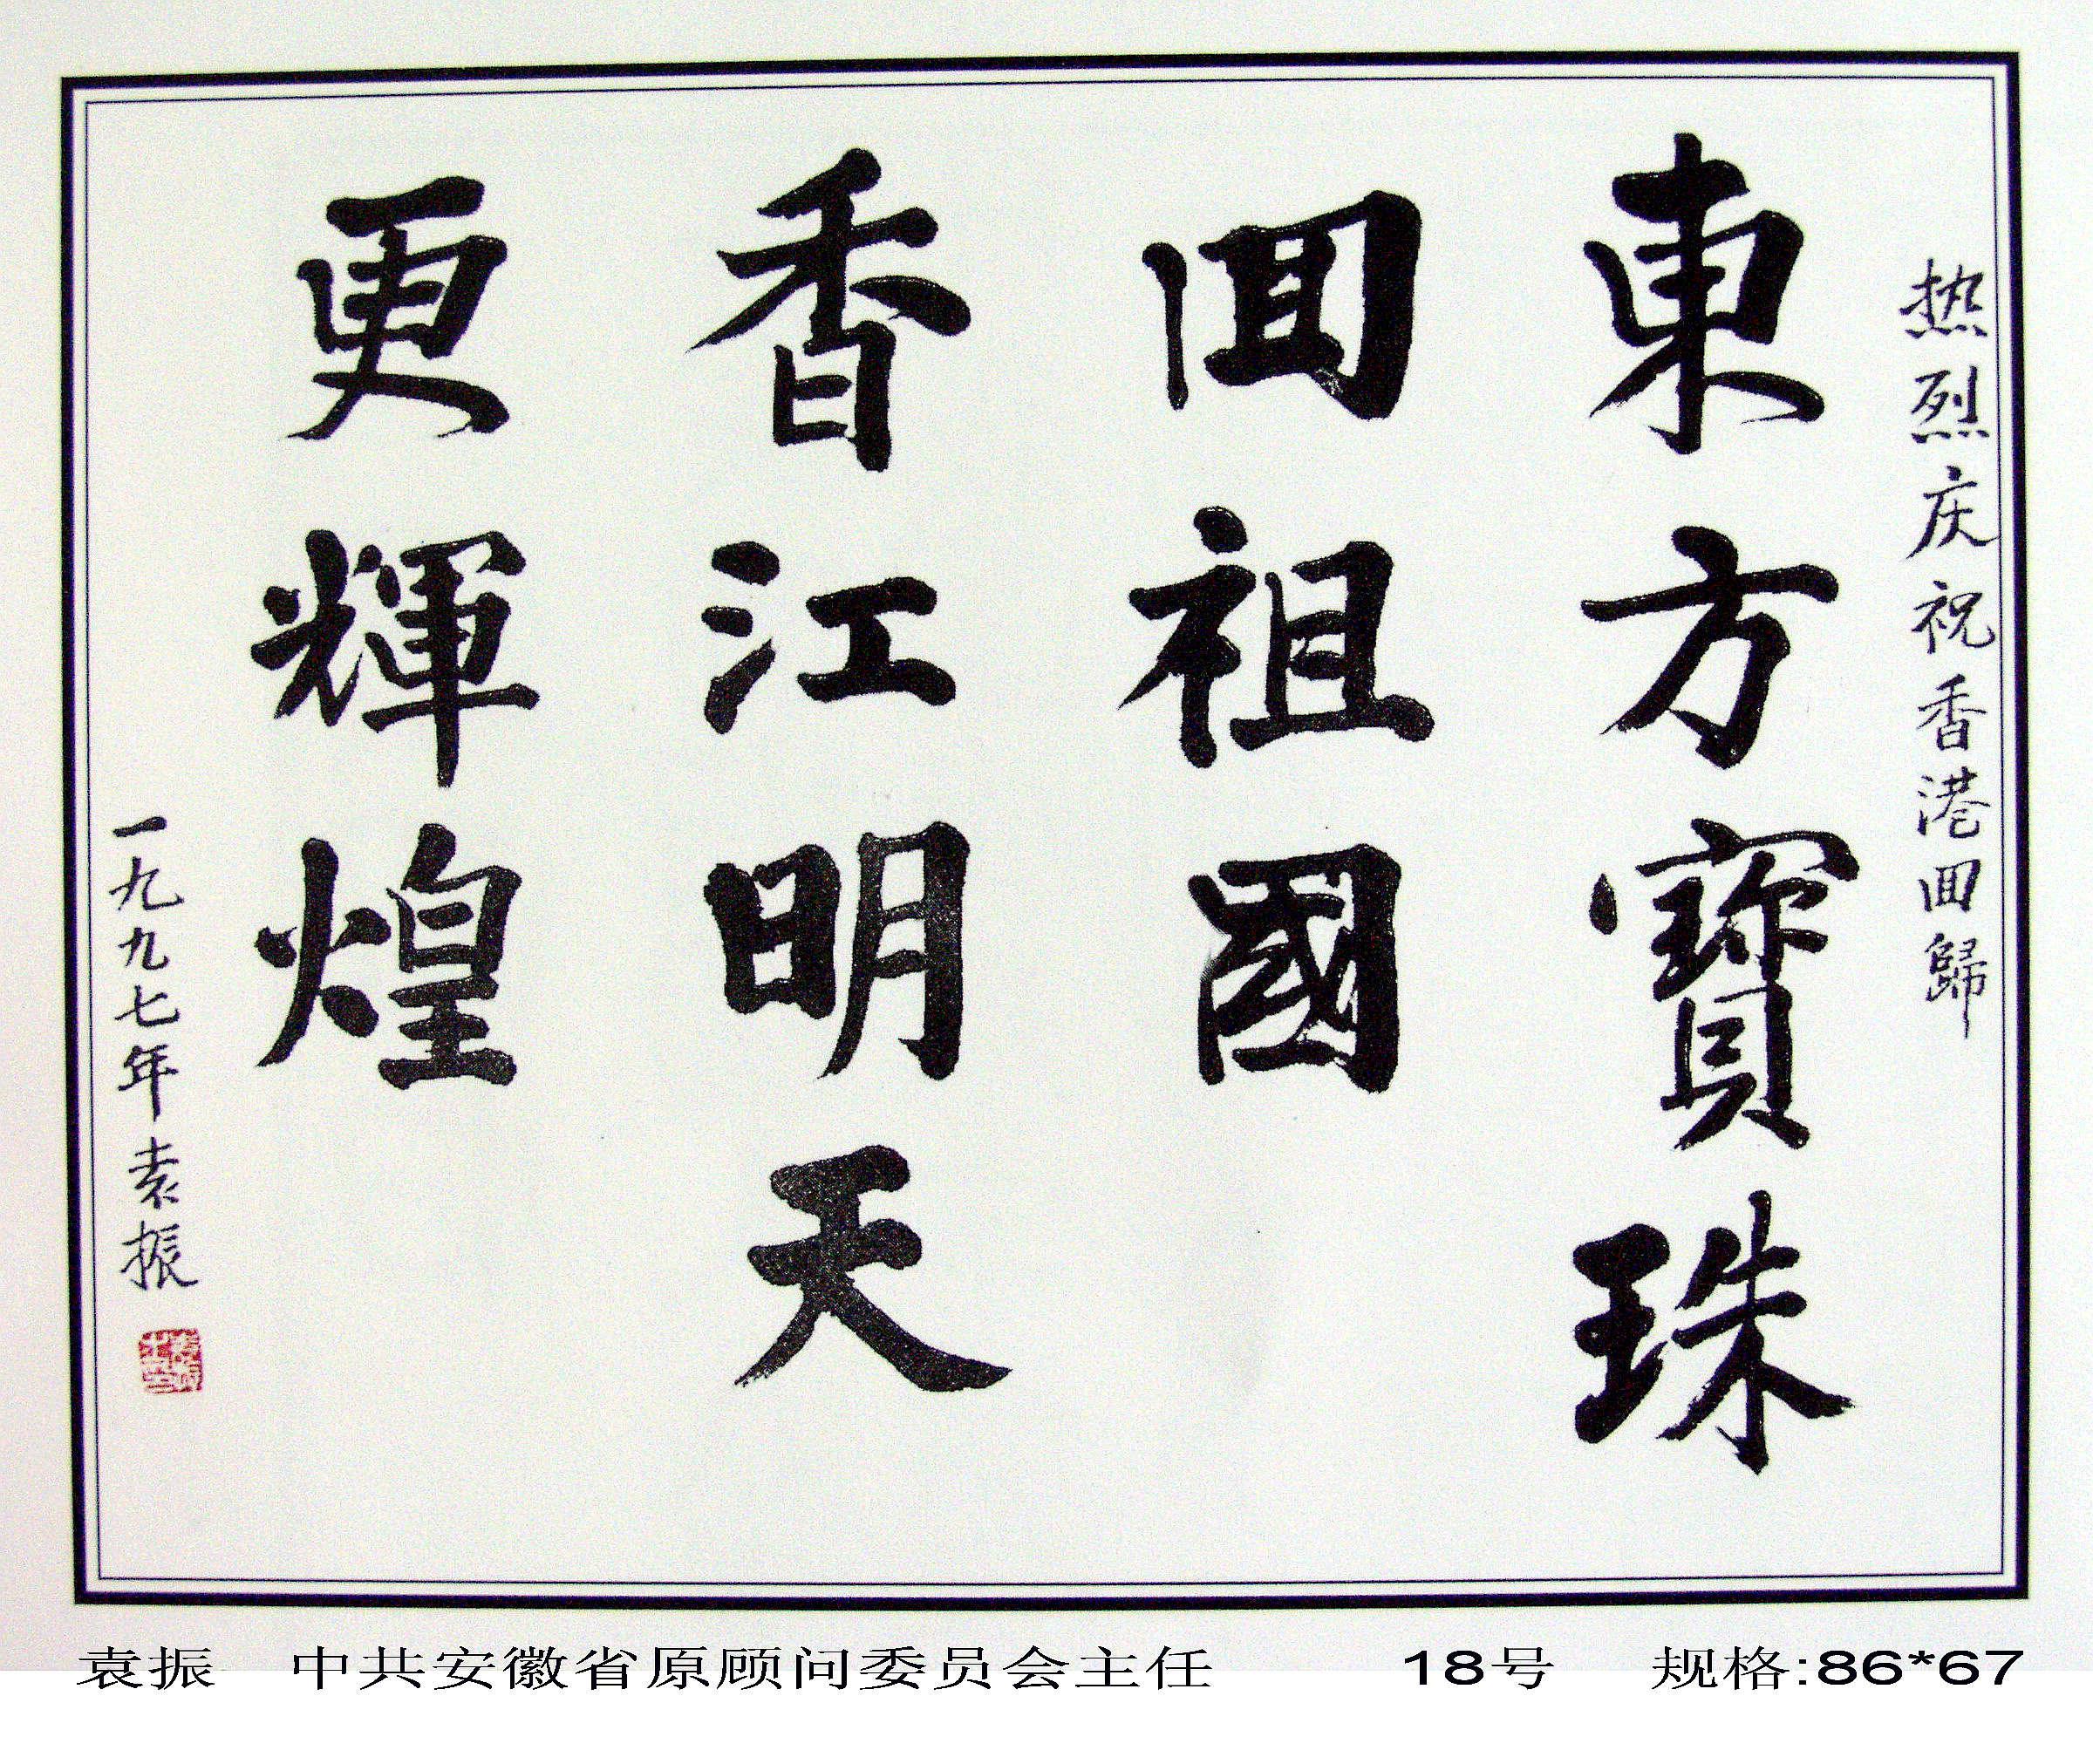 热烈庆祝香港回歸
東方寶珠
回祖國
香江明天
更輝煌
一九九七年袁振
袁振 中共安徽省原顾问委员会主任 18号 规格:86*67